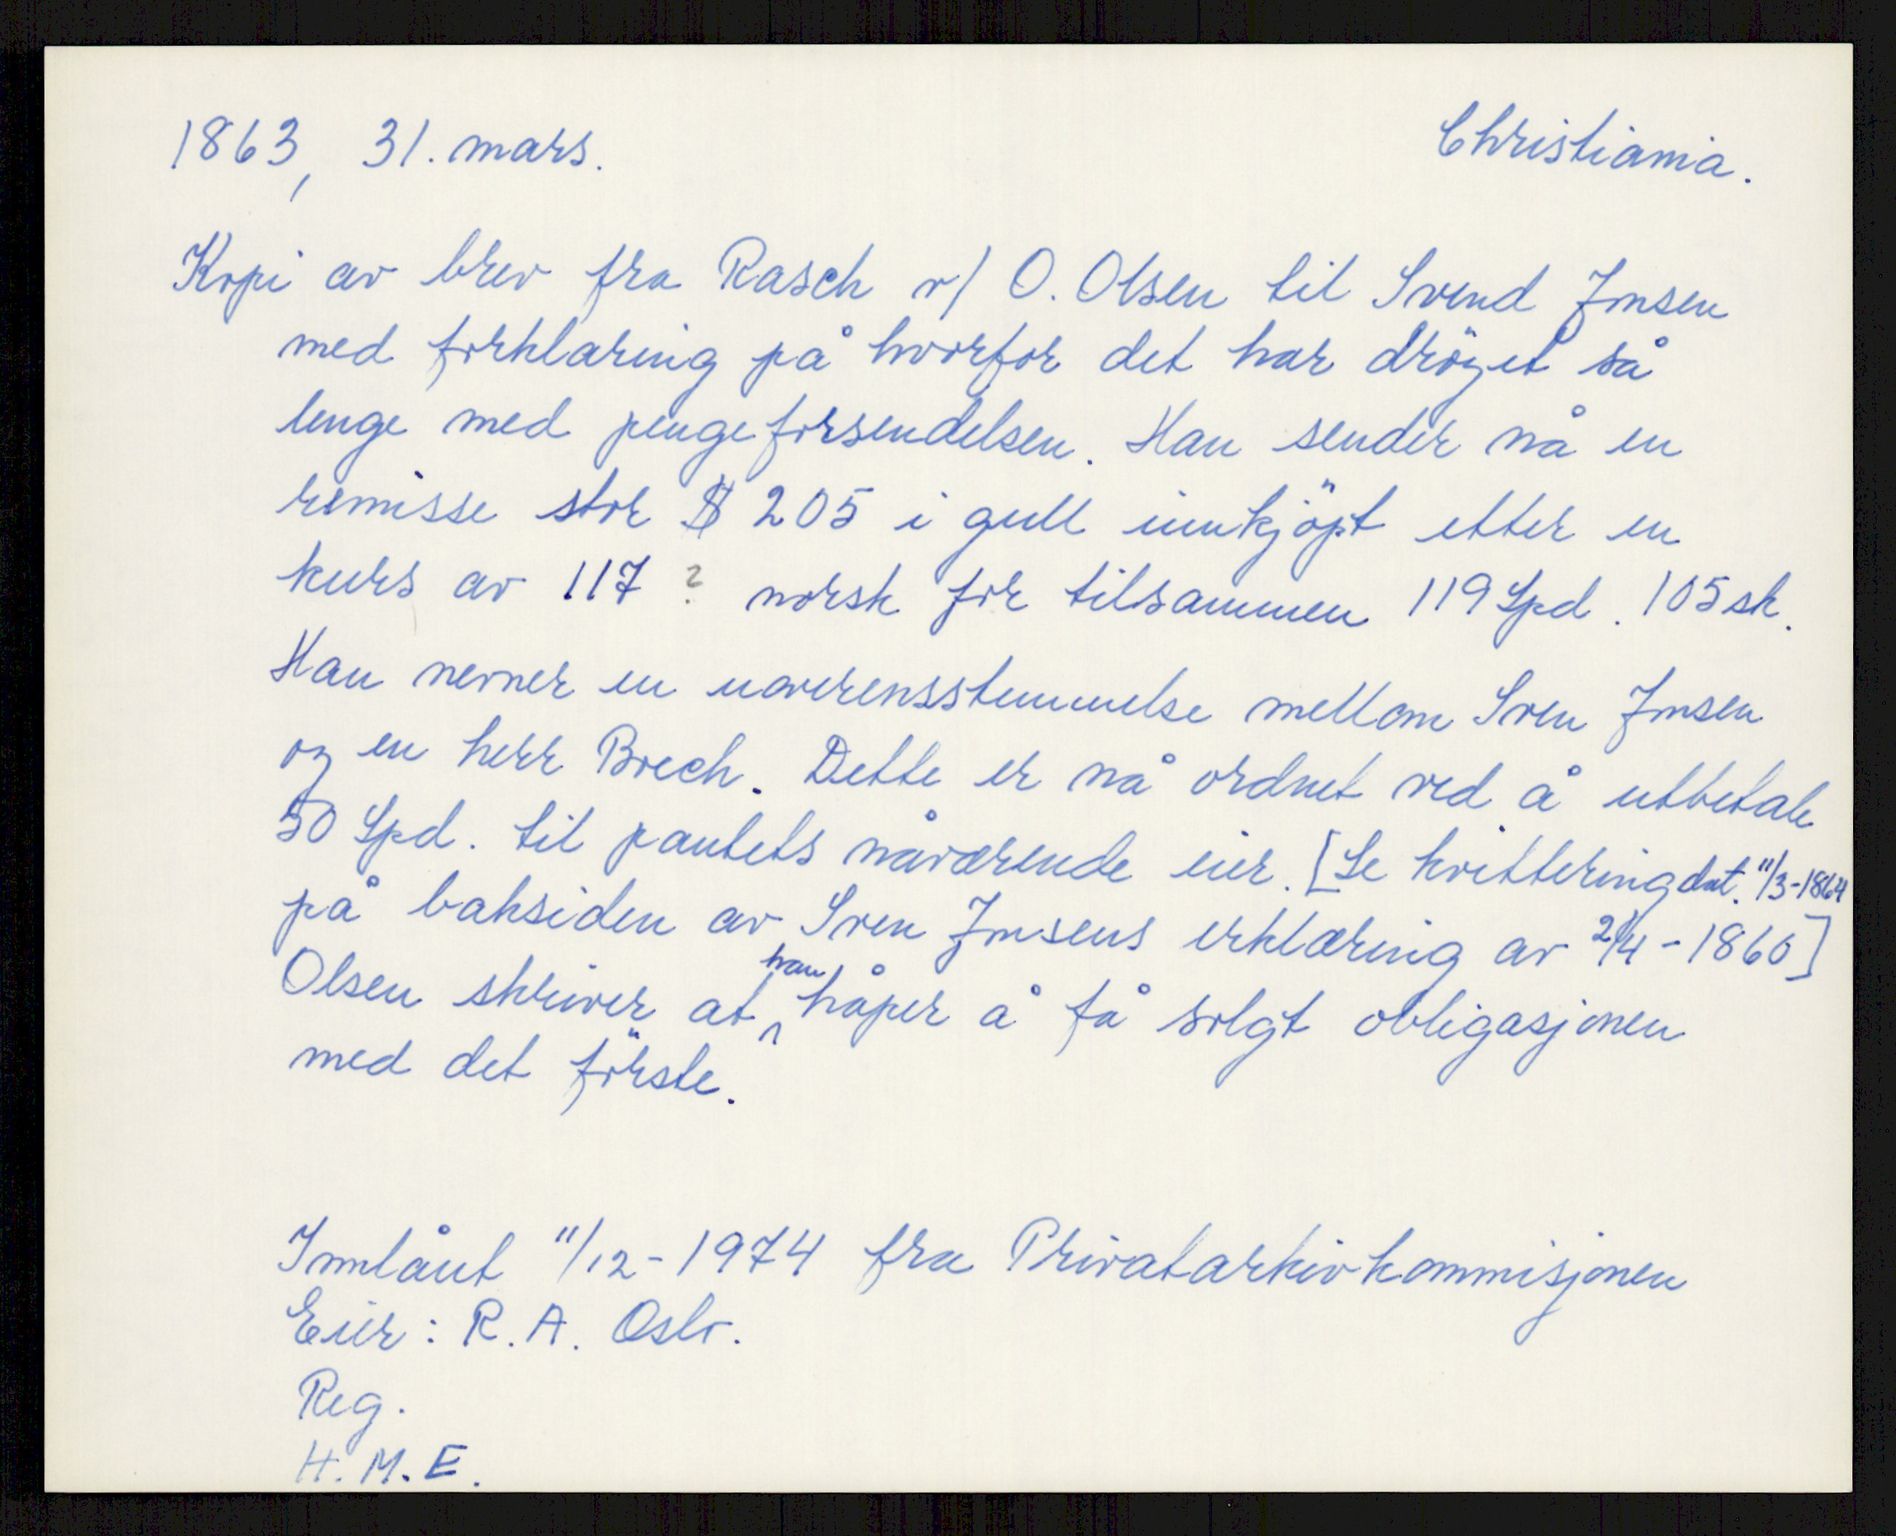 1863, 31. mars. Christiania.
Kopi av brev fra Rasch v/ O. Olsen til Svend Jonsen
med forklaring på hvorfor det har dröyet så
lenge med pengeforsendelsen. Han sender nå en
remisse stor $ 205 i gull innkjöpt etter en
kurs av 117 ? norsk for tilsammen 119 Spd. 105 sk.
Han nevner en uoverensstemmelse mellom Sven Jonsen
og en herr Brech. Dette er nå ordnet ved å utbetale
50 Spd. til pantets nåværende eier. [Se kvittering dat. 11/3-1864
på baksiden av Sven Jonsens erklæring av 21/4-1860]
Olsen skriver at han håper å få solgt obligasjonen
med det förste.
Innlånt 11/12-1974 fra Privatarkivkommisjonen
Eier: R.A. Oslo.
Reg.
H.M.E.